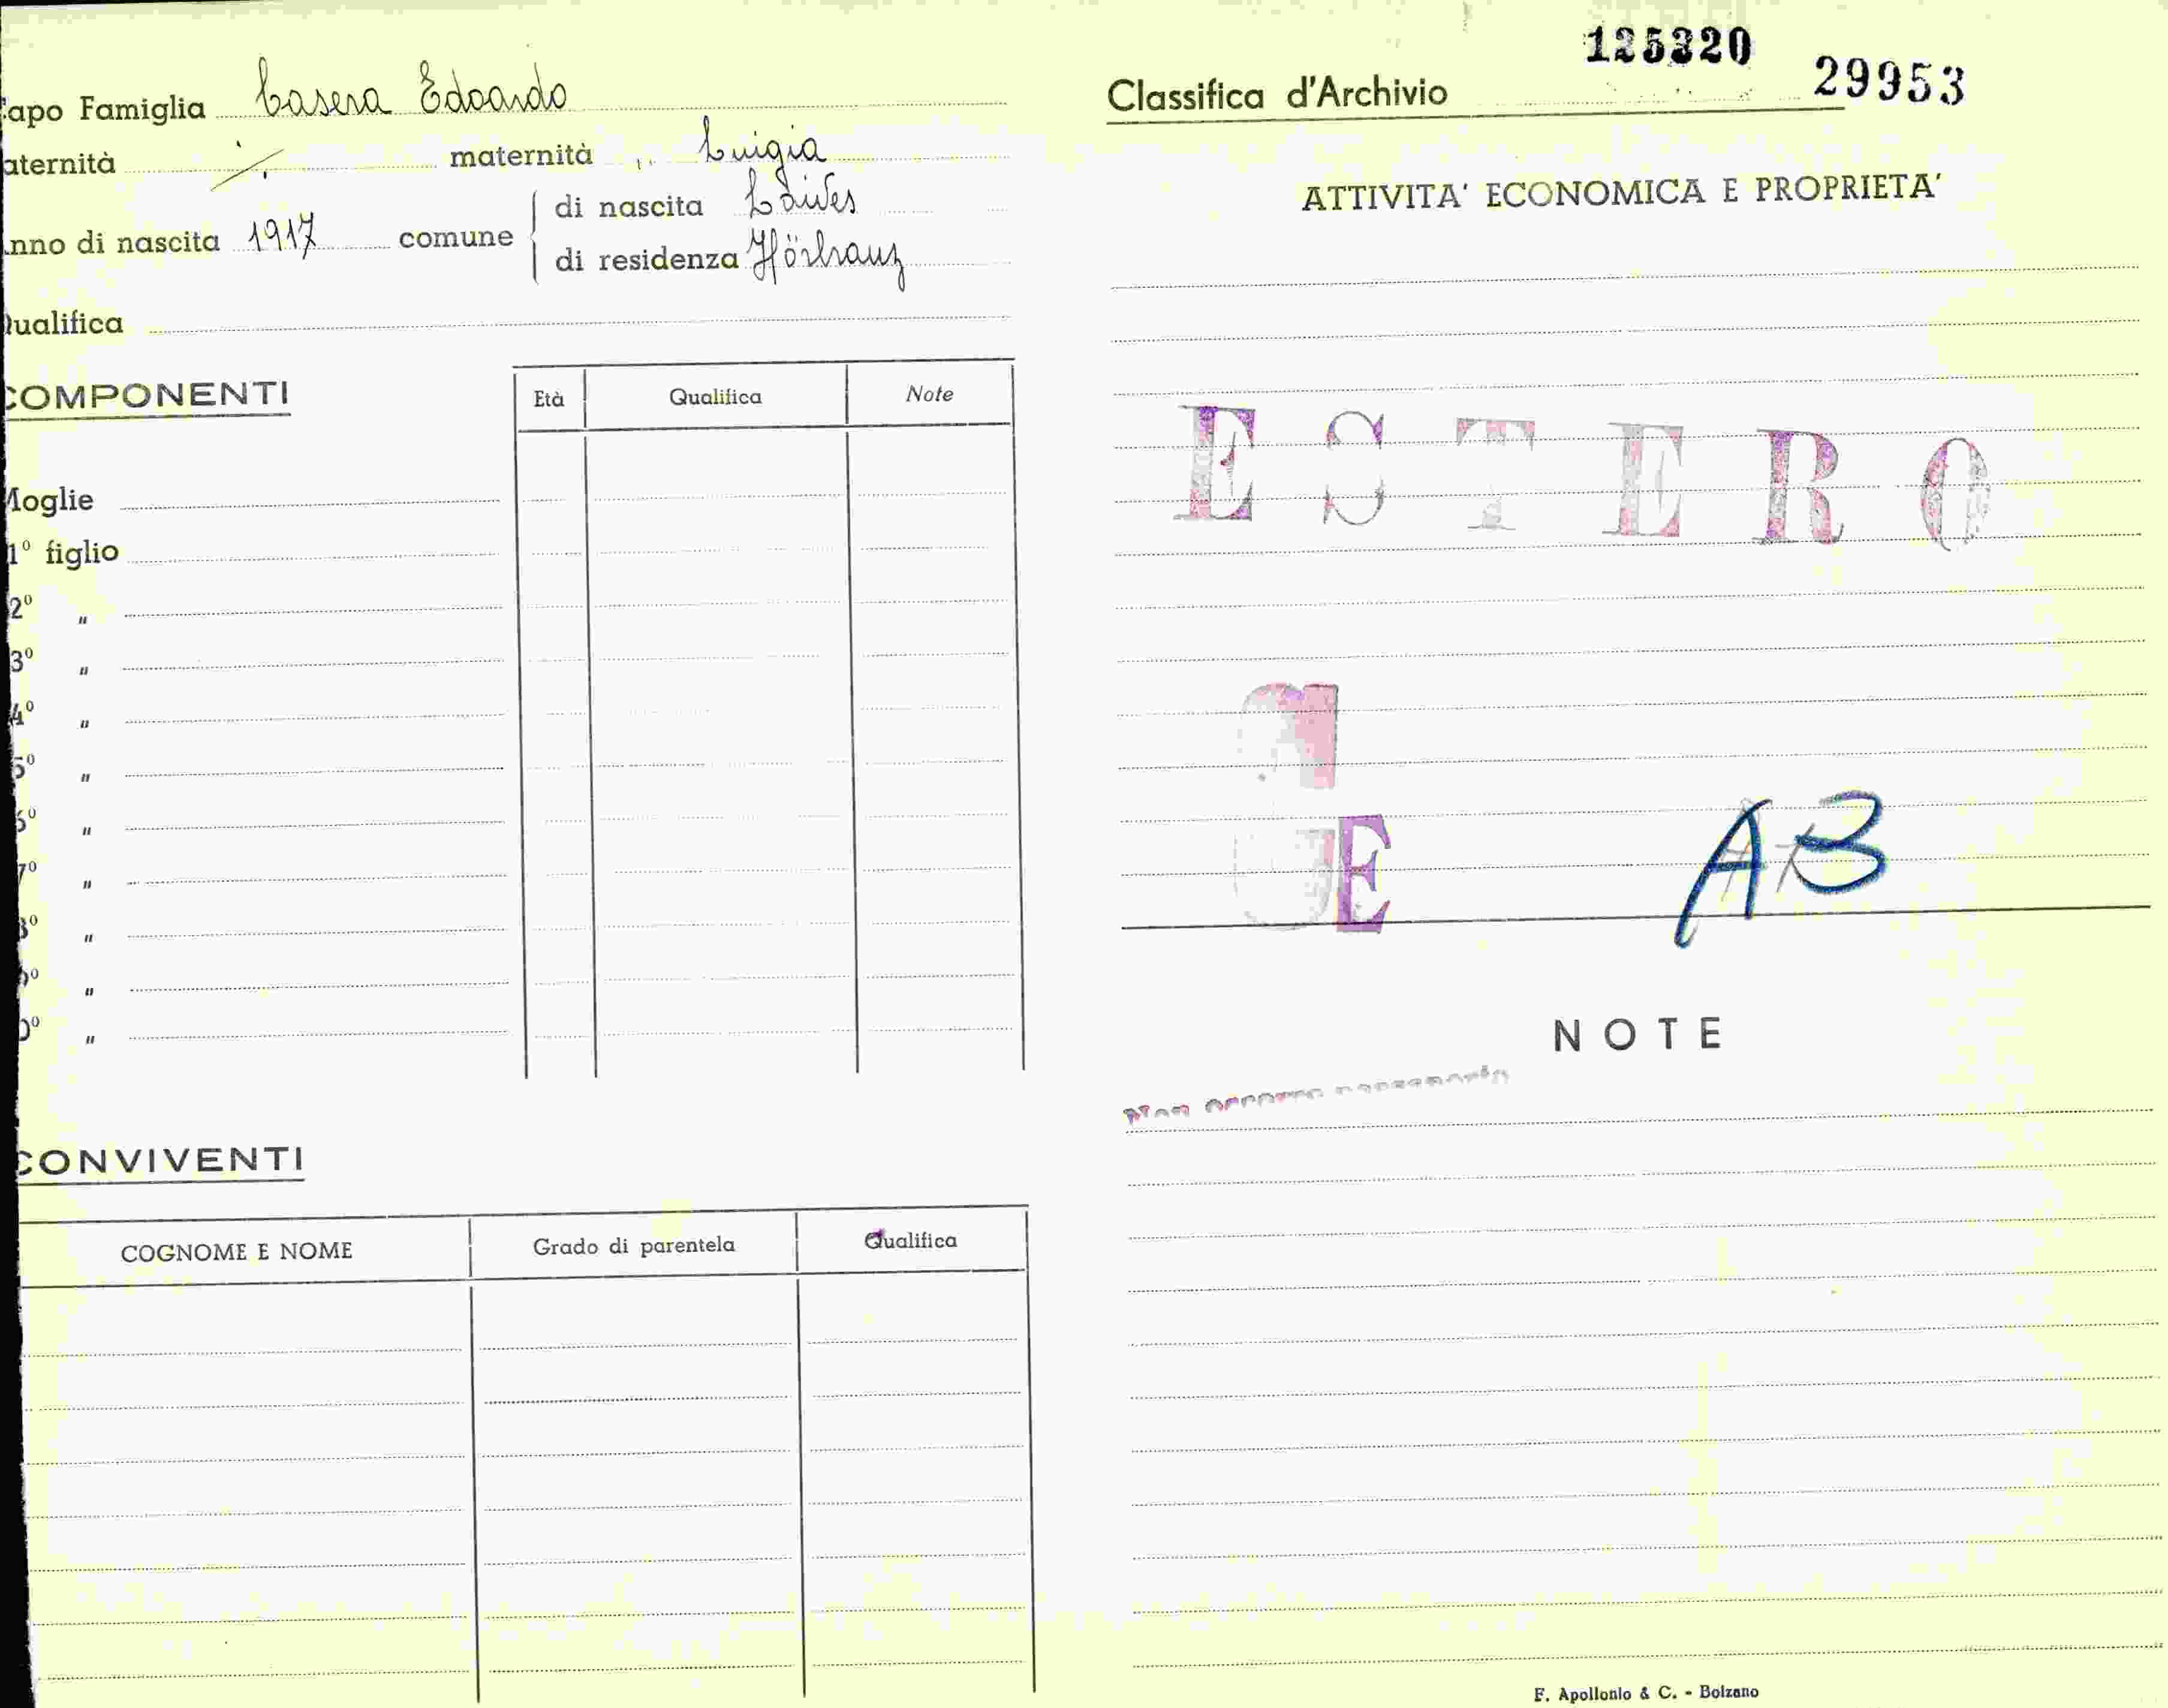 apo Famiglia Casera Edoardo
aternità ./. maternità „ Luigia
nno di nascita 1917 comune di nascita Laives
di residenza Hörbranz
ualifica
COMPONENTI
Età Qualifica Note
Moglie
1º figlio
2º "
3º "
4º "
5º "
6º "
7º "
8º "
9º "
0º "
CONVIVENTI
COGNOME E NOME Grado di parentela Qualifica
125320
Classifica d'Archivio 29953
ATTIVITA' ECONOMICA E PROPRIETA'
ESTERO
E
AB
NOTE
Non occorre passaporto
F. Apollonio & C. - Bolzano